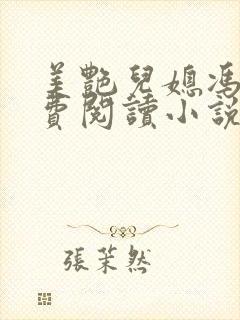 美艷兒媳馮
費閱讀小說
張茉然